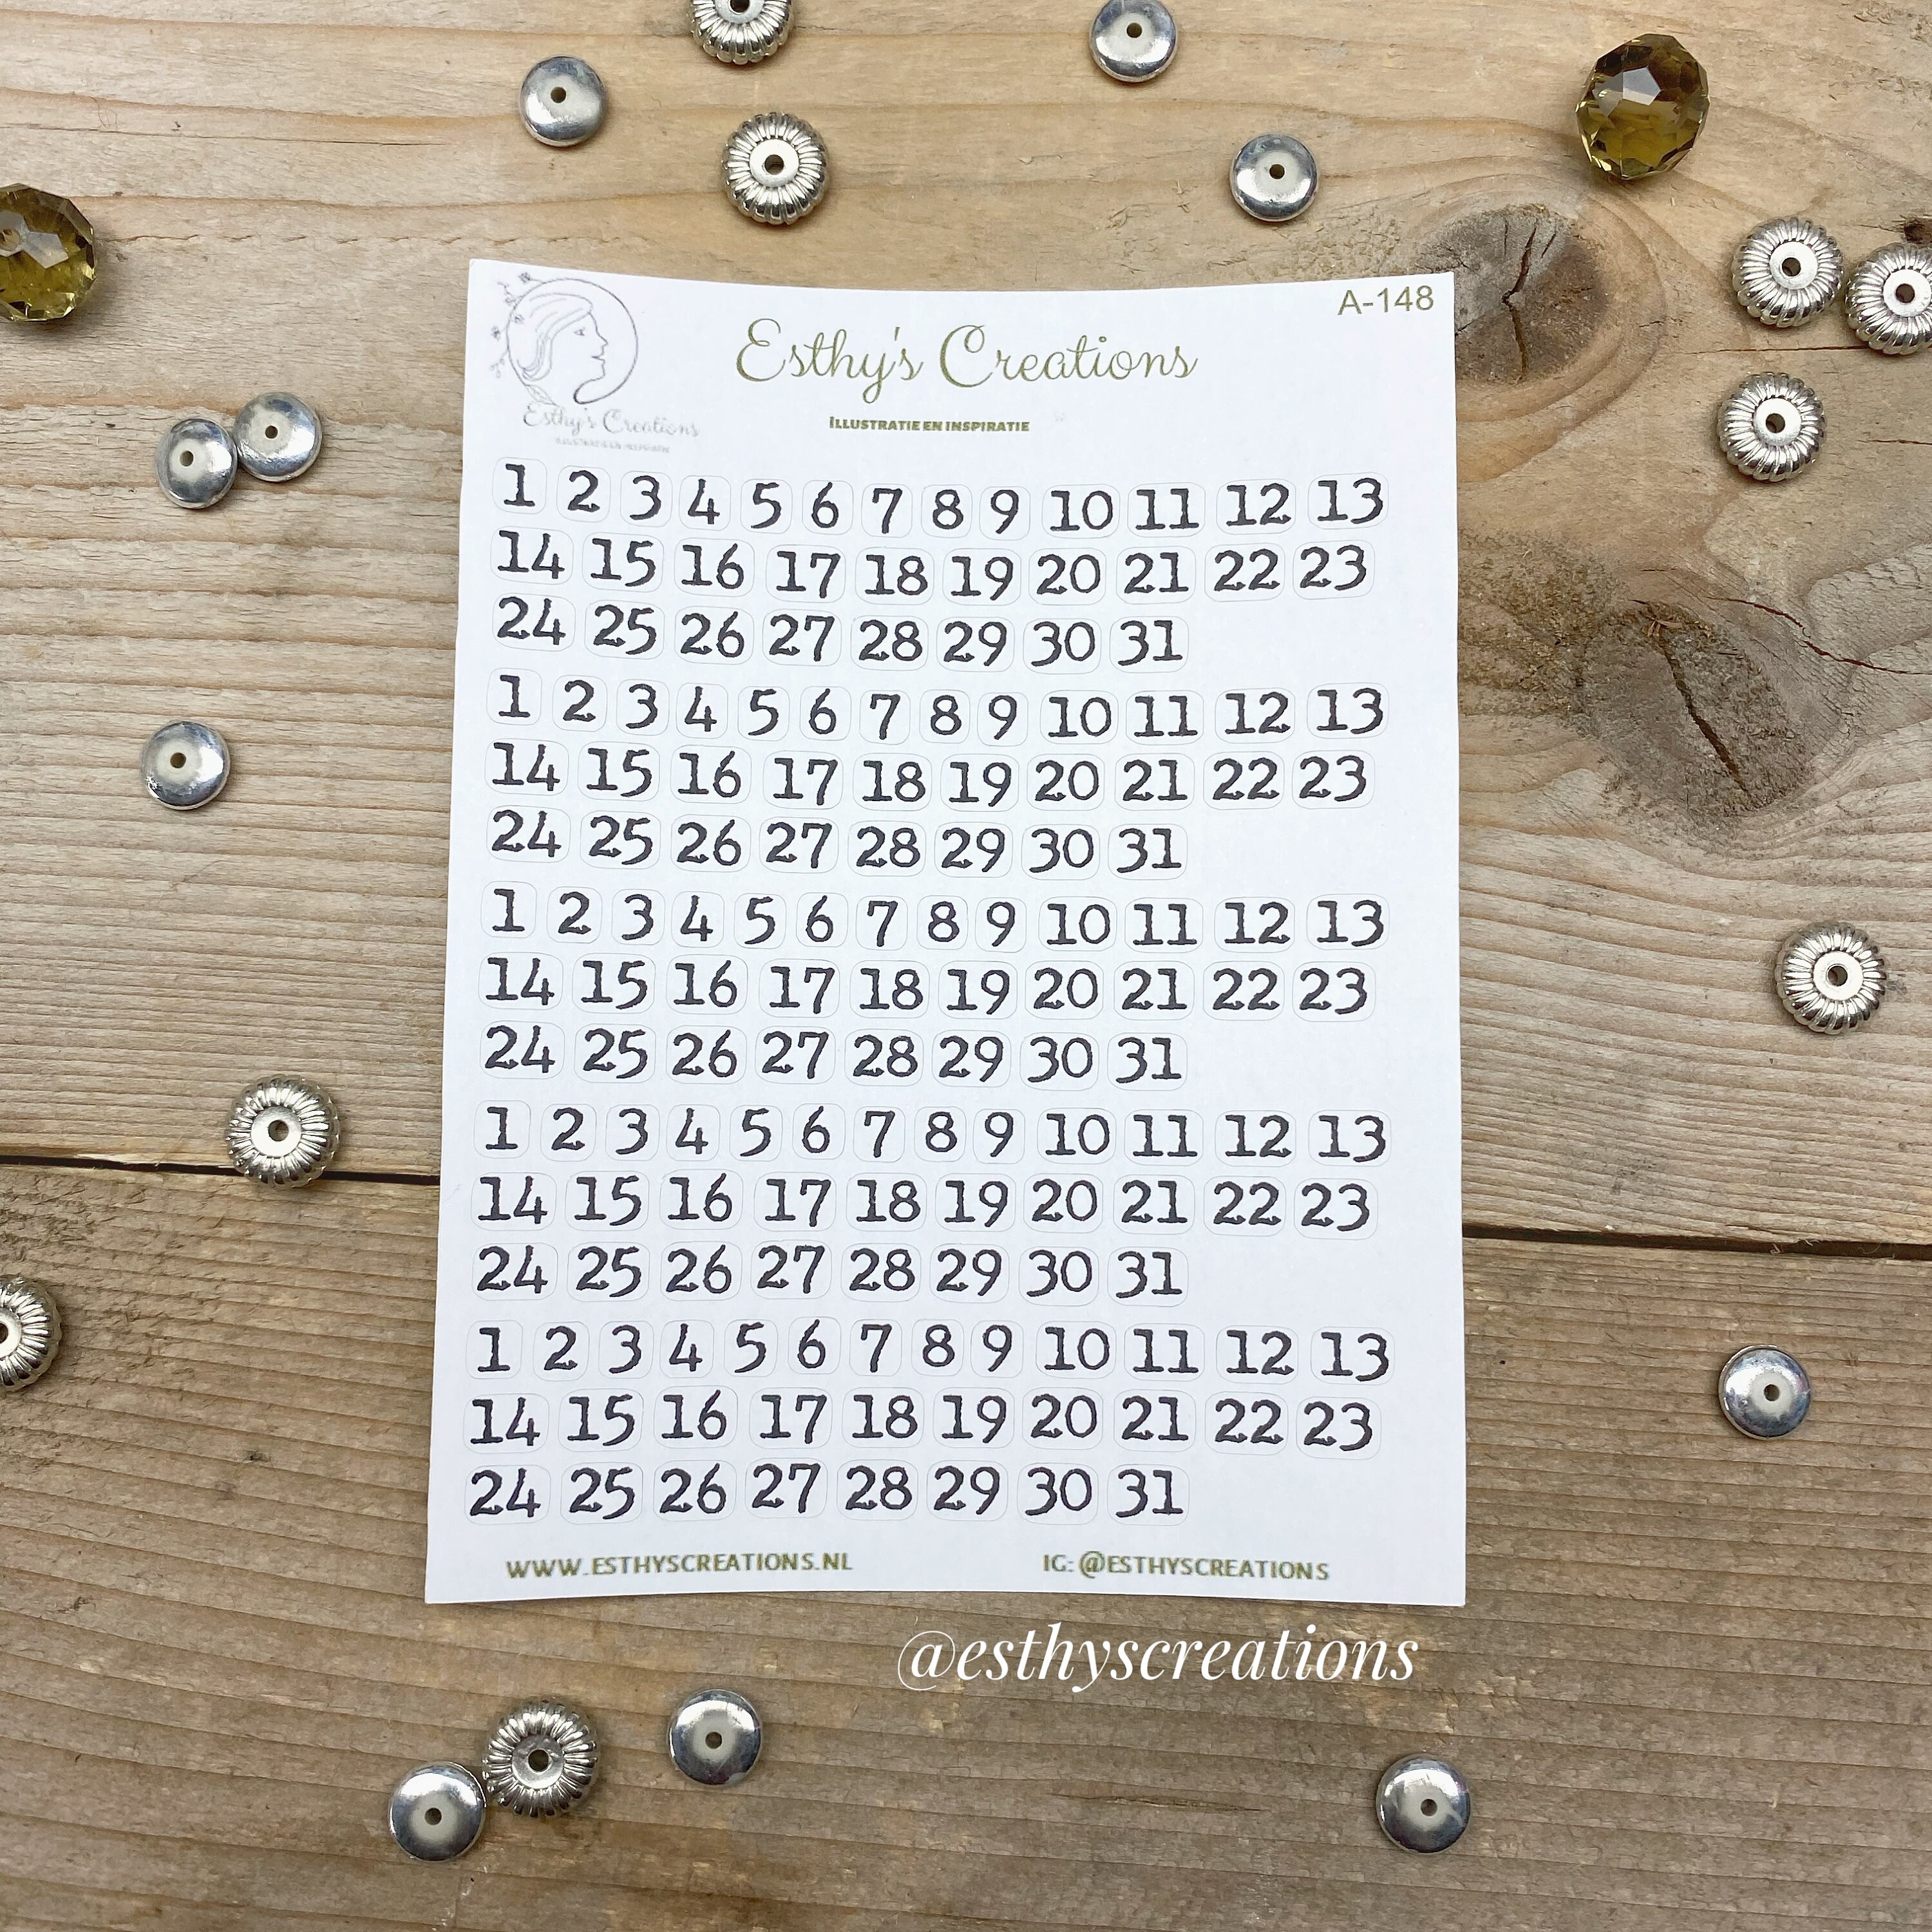 A-148
Esthy's Creations
ILLUSTRATIE EN INSPIRATIE
Esthy's Creations
ILLUSTRATIE EN INSPIRATIE
1 2 3 4 5 6 7 8 9 10 11 12 13
14 15 16 17 18 19 20 21 22 23
24 25 26 27 28 29 30 31
1 2 3 4 5 6 7 8 9 10 11 12 13
14 15 16 17 18 19 20 21 22 23
24 25 26 27 28 29 30 31
1 2 3 4 5 6 7 8 9 10 11 12 13
14 15 16 17 18 19 20 21 22 23
24 25 26 27 28 29 30 31
1 2 3 4 5 6 7 8 9 10 11 12 13
14 15 16 17 18 19 20 21 22 23
24 25 26 27 28 29 30 31
1 2 3 4 5 6 7 8 9 10 11 12 13
14 15 16 17 18 19 20 21 22 23
24 25 26 27 28 29 30 31
WWW.ESTHYSCREATIONS.NL IG: @ESTHYSCREATIONS
@esthyscreations